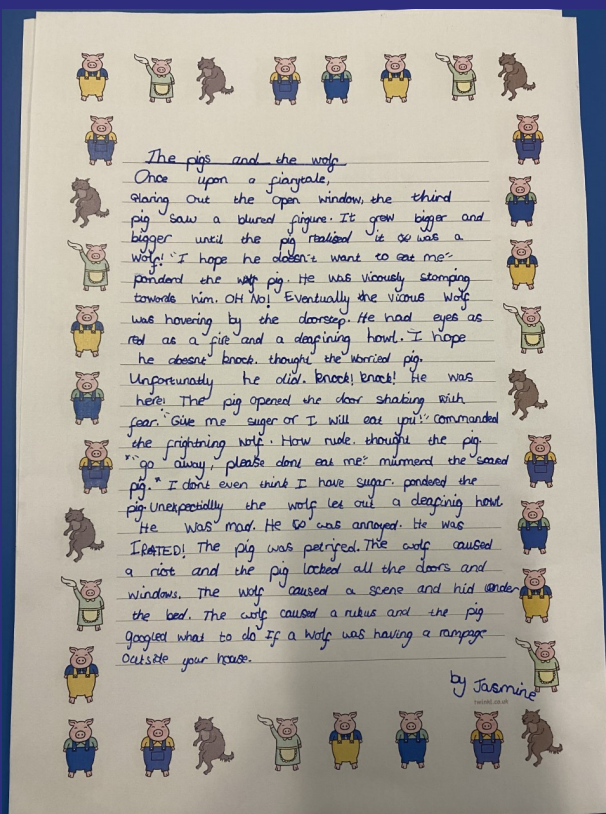 The pigs and the wolf
Once upon a fiarytale,
Glaring out the open window, the third
pig saw a blured figure. It grew bigger and
bigger until the pig realised it was a
wolf! "I hope he doesn't want to eat me"
ponderd the pig. He was vicously stomping
towards him. OH NO! Eventually the vicous wolf
was hovering by the doorstep. He had eyes as
red as a fire and a deafining howl. I hope
he doesnt knock. thought the worried pig.
Unfortunatly he did. knock! knock! He was
here! The pig opened the door shaking with
fear. "Give me suger or I will eat you!" commanded
the frightning wolf. How rude. thought the pig.
"go away, please dont eat me" murmerd the scared
pig. "I dont even think I have sugar. pondered the
pig. Unexpectidlly the wolf let out a deafinig howl
He was mad. He was annoyed. He was
IRATED! The pig was petrifed. The wolf caused
a riot and the pig locked all the doors and
windows. The wolf caused a scene and hid under
the bed. The wolf caused a rukus and the pig
googled what to do if a wolf was having a rampage
outside your house.
by Jasmine
twinkl.co.uk